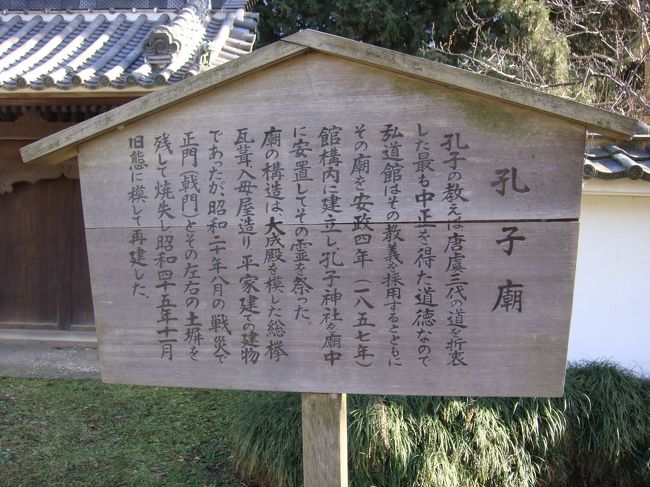 孔子廟
孔子の教えは唐虞三代の道を折衷
した最も中正を得た道徳なので
弘道館はその教義を採用するとともに
その廟を安政四年（一八五七年）
館構内に建立し、孔子神位を廟中
に安置してその霊を祭った。
廟の構造は、大成殿を模した総欅
瓦葺入母屋造り、平家建ての建物
であったが昭和二十年八月の戦災で
正門（戟門）とその左右の土塀を
残して焼失し昭和四十五年十一月
旧態に模して再建した。